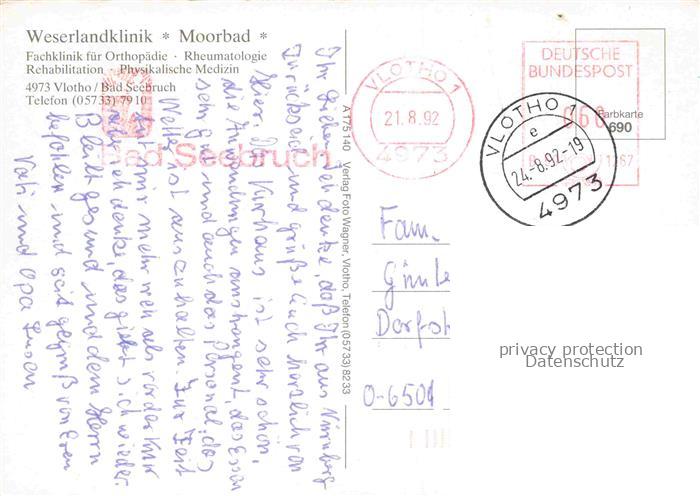 Weserlandklinik * Moorbad *
Fachklinik für Orthopädie · Rheumatologie
Rehabilitation · Physikalische Medizin
4973 Vlotho / Bad Seebruch
Telefon (05733) 7910
Bad Seebruch
VLOTHO 1
21.8.92
4973
DEUTSCHE
BUNDESPOST
060
VLOTHO 1
e
24.-8.92-19
4973
Farbkarte
690
A175140 Verlag Foto Wagner, Vlotho, Telefon (05733) 8233
Ihr Lieben, Ich denke, daß Ihr aus Nürnberg
zurück seid und grüße Euch herzlich von
hier. Das Kurhaus ist sehr schön,
die Anwendungen anstrengent, das Essen
sehr gut und auch das Personal, das
Wetter ist auszuhalten. Zur Zeit
tut mir mehr weh als vor der Kur
aber ich denke, das giebt sich wieder.
Bleibt gesund und dem Herrn
befohlen und seit gegrüßt von Eurem
Vati und Opa
Fam.
Günte
Dorfst
O-6501
privacy protection
Datenschutz